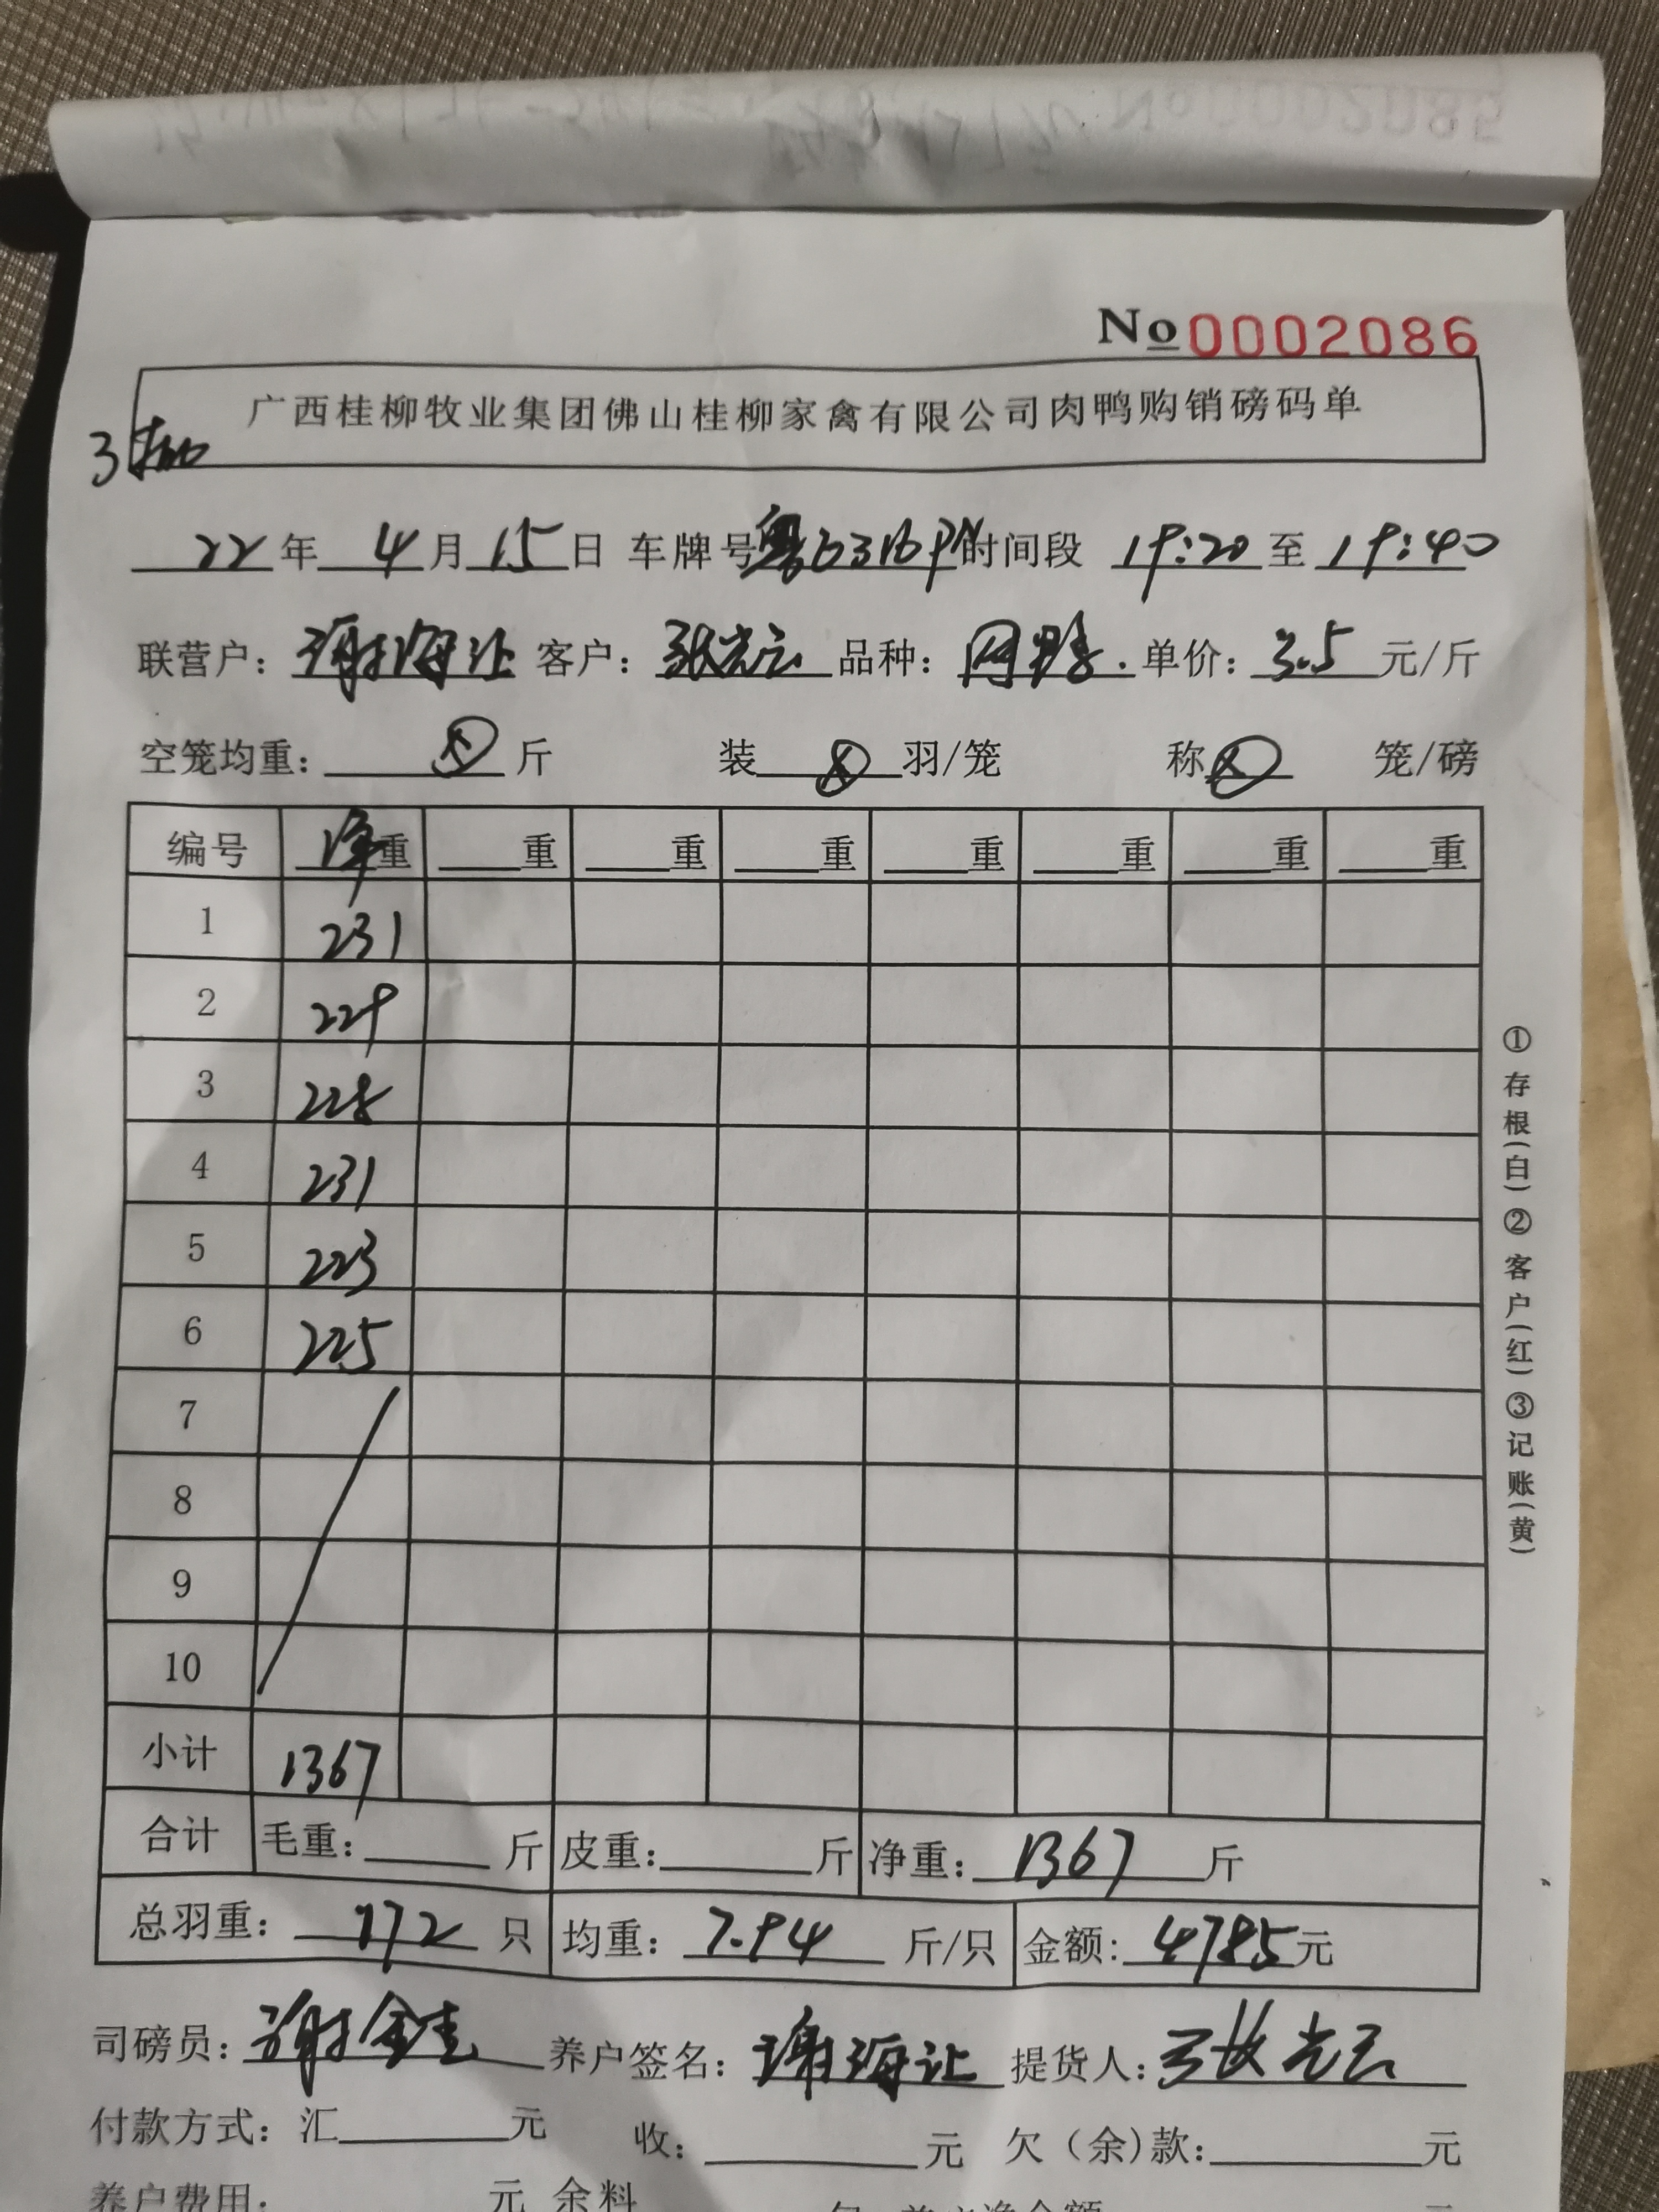 No 0002086
广西桂柳牧业集团佛山桂柳家禽有限公司肉鸭购销磅码单
3
22年4月15日 车牌号粤 时间段 19:20至19:40
联营户：谢海让 客户：张光云 品种： 单价：3.5元/斤
空笼均重： 斤 装 羽/笼 称 笼/磅
编号 净重 重 重 重 重 重 重 重
1 231
2 229
3 228
4 231
5 223
6 225
7
8
9
10
小计 1367
合计 毛重： 斤 皮重： 斤 净重：1367斤
总羽重：172只 均重：7.94斤/只 金额：4785元
司磅员：谢金 养户签名：谢海让 提货人：张光云
付款方式：汇 元 收： 元 欠（余）款： 元
养户费用： 元 余料
①存根(白)②客户(红)③记账(黄)